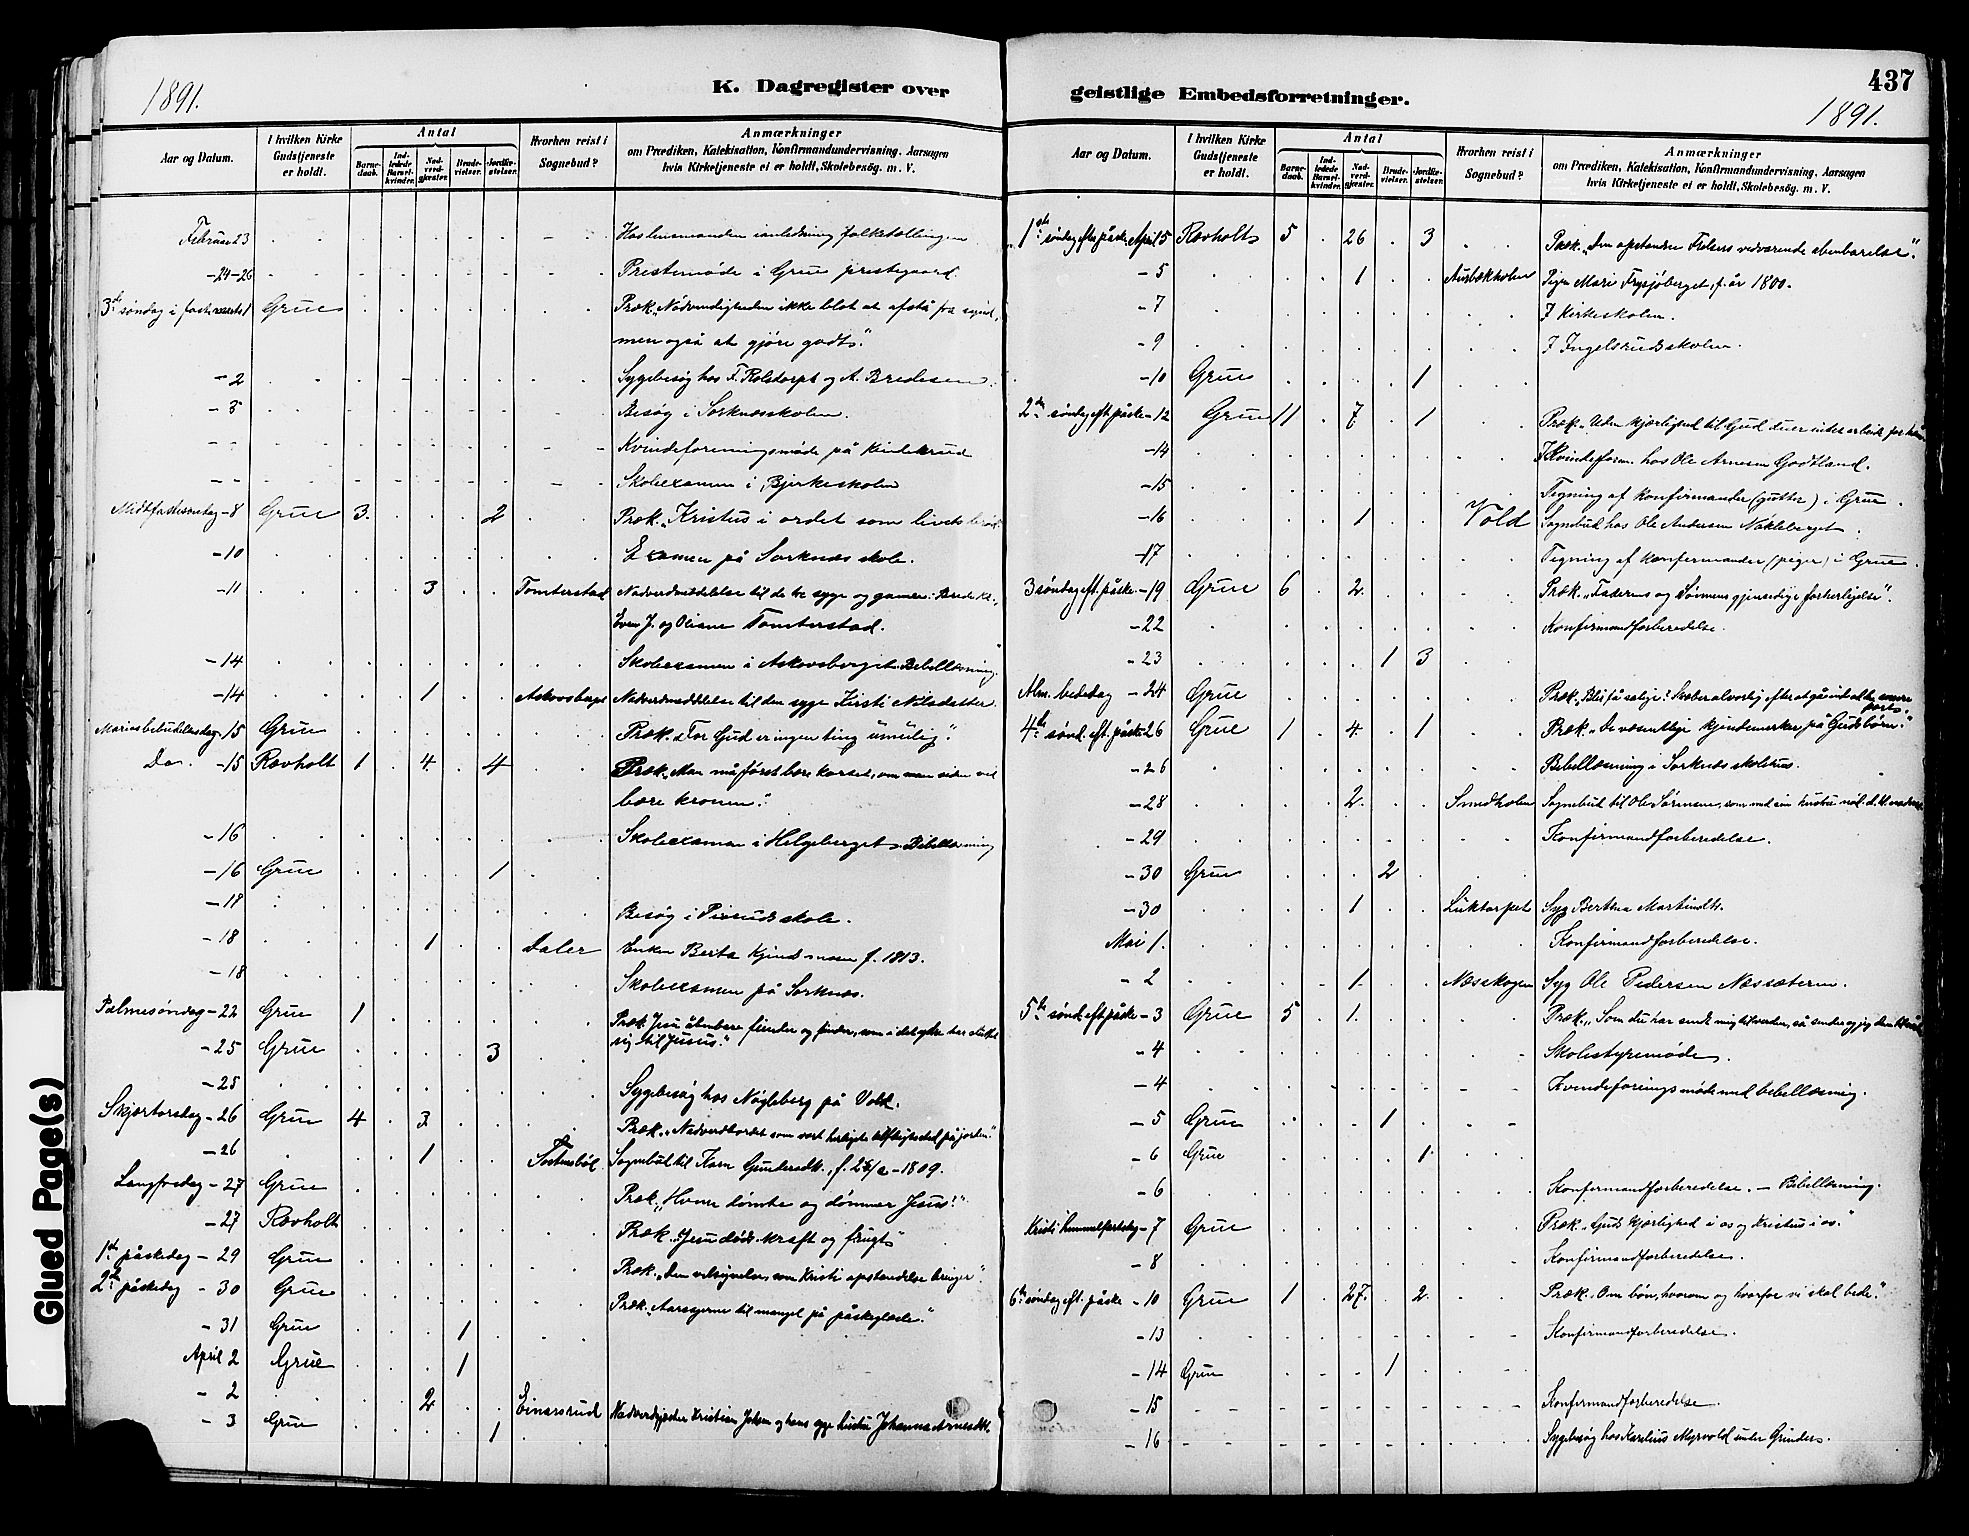 1891.
K. Dagregister over
Aar og Datum.
I hvilken Kirke Gudstjeneste er holdt.
Antal
Barnedaab.
Indledede Barselkvinder.
Nadverdgjæster.
Brudevielser.
Jordfæstelser.
Hvorhen reist i Sognebud?
Anmærkninger
om Prædiken, Katekisation, Konfirmandundervisning, Aarsagen
hvis Kirketjeneste ei er holdt, Skolebesøg. m. V.
Februar 23 folketællingen
-24-26 Prestemøde i Grue prestegaard.
3de søndag i faste marts 1 Grue Præk. „Nødvendigheden ikke blot at afstå fra synd,
men også at gjøre godt."
-2 Sygebesøg hos F. Rolstorpt og A. Bredesen.
-3 Besøg i Sorknæsskolen.
- - Kvindeforeningsmøde på
- - Skoleexamen i Bjerkeskolen
Midtfastesøndag -8 Grue 3. 2 Præk. „Kristus i ordet som livets brød
-10 Examen på Sorknæs skole.
-11 3 Tomterstad Nadverdmeddelelse til de tre syge og gamle:
Even J. og Oliane Tomterstad.
-14 Skoleexamen i Askovsberget. Bibellæsning.
-14 1 Askovsberget Nadverdmeddelelse til den syge Kirsti Nilsdatter.
Mariæ bebudelsesdag -15 Grue Præk. „For Gud er ingen ting umulig."
Do. -15 Rovholt 1 4 4 Præk. „Man må først bære korset, om man siden vil
bære kronen."
-16 Skoleexamen i Helgeberget. Bibellæsning
-16 Grue 1
-18 Besøg i skole.
-18 1 Daler Enken Berta f. 1813.
-18 Skoleexamen på Sorknæs.
Palmesøndag -22 Grue 1 Præk. Jesu åbenbare fiender og
sig til Jesus."
-25 Grue 3
-25 Sygebesøg hos Nøgleberg på Vold.
Skjærtorsdag -26 Grue 4 3 Præk. „Nadverdbordet som vort herligste tilflugtssted på jorden."
-26 1 Sognebud til Karn f. -1809.
Langfredag -27 Grue Præk. „Hvem dømte og dømmer Jesus?"
-27 Rovholt Præk. „Jesu døds kraft og frugt"
1ste påskedag -29 Grue Præk. „Den velsignelse, som Kristi opstandelse bringer".
2den påskedag -30 Grue Præk. „Aarsagerne til mangel på påskeglæde."
-31 Grue 1
April 2 Grue 1
-2 2 Einarsrud Nadverdgjæster Kristian Johsen og hans syge hustru Johanna Arnesdtr.
-3 Grue 1
geistlige Embedsforretninger.
437
1891.
Aar og Datum.
I hvilken Kirke Gudstjeneste er holdt.
Antal
Barnedaab.
Indledede Barselkvinder.
Nadverdgjæster.
Brudevielser.
Jordfæstelser.
Hvorhen reist i Sognebud?
Anmærkninger
om Prædiken, Katekisation, Konfirmandundervisning, Aarsagen
hvis Kirketjeneste ei er holdt, Skolebesøg. m. V.
1ste søndag efter påske April 5 Rovholt 5 26 3 Præk. „Den opstandne Frelsers vedvarende åbenbarelse".
-5 1 Ausbækholen Pige Mari Frysjøberget, f. år 1800.
-7 I Kirkeskolen.
-9 I Ingelsrudskolen.
-10 Grue 1
2den søndag eft. påske -12 Grue 11 7 1 Præk. „Uden kjærlighed til Gud duer intet arbeide for ham
-14 I Kvindeforn. hos Ole Arnesen Godtland.
-15 Tegning af konfirmander (gutter) i Grue.
-16 1 Vold Sognebud hos Ole Andersen Nøkleberget.
-17 Tegning af konfirmander (piger) i Grue.
3 søndag eft. påske -19 Grue 6 2 Præk. „Faderens og Sønnens gjensidige forherligelse".
-22 Konfirmandforberedelse.
-23 1 3
Alm. bededag -24 Grue Præk. „Bli få salige? Stræber alvorlig efter at gå ind ad den snævre
port".
4de sønd. eft. påske 26 Grue 1 4 1 Præk. „De væsentlige kjendemerker på Guds børn."
-26 Bibellæsning i Sorknæs skolehus.
-28 2 Smedholen Sognebud til Ole Sørensen, som med sin hustru
-29 Konfirmandforberedelse.
-30 Grue 2
-30 1 Luktorpet Syg Berthea Martinsdtr.
Mai 1. Konfirmandforberedelse.
-2 1 Næsskogen Syg Ole Pedersen Næssæteren.
5te sønd. eft. påske -3 Grue 5 1 Præk. „Som du har sendt mig til verden, så sender og jeg dem
-4 Skolestyremøde.
-4 Kvindeforeningsmøde med bibellæsning.
-5 Grue 1
-6 Grue 1
-6 Konfirmandforberedelse. - Bibellæsning.
Kristi himmelfartsdag -7 Grue Præk. „Guds kjærlighed i os og Kristus i os."
-8 Konfirmandforberedelse.
6te søndag eft. påske -10 Grue 1 27. 2 Præk. „Om bøn, hvorom og hvorfor vi skal bede."
-13 Konfirmandforberedelse.
-14 Grue 1
-15 Konfirmandforberedelse.
-16 Sygebesøg hos Karelius Myrvold under Grinder.
Glued Page(s)